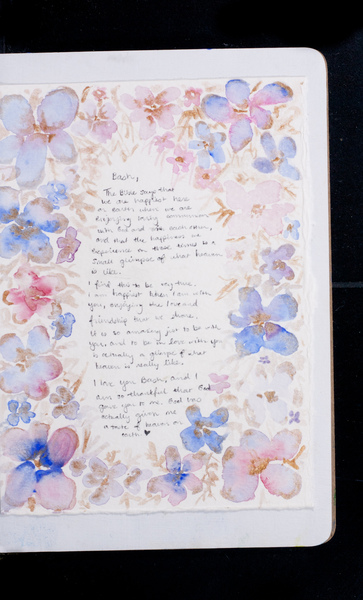 Bash,
The Bible says that
we are happiest here
on earth when we are
enjoying loving communion
with God and one another,
and that the happiness we
experience on those times is a
small glimpse of what heaven
is like.
I find this to be very true.
I am happiest when I am with
you, enjoying the love and
friendship that we share.
It is so amazing just to be with
you, and to be in love with you
is actually a glimpse of what
heaven is really like.
I love you Bash, and I
am so thankful that God
gave you to me. God has
actually given me
a taste of heaven on
earth